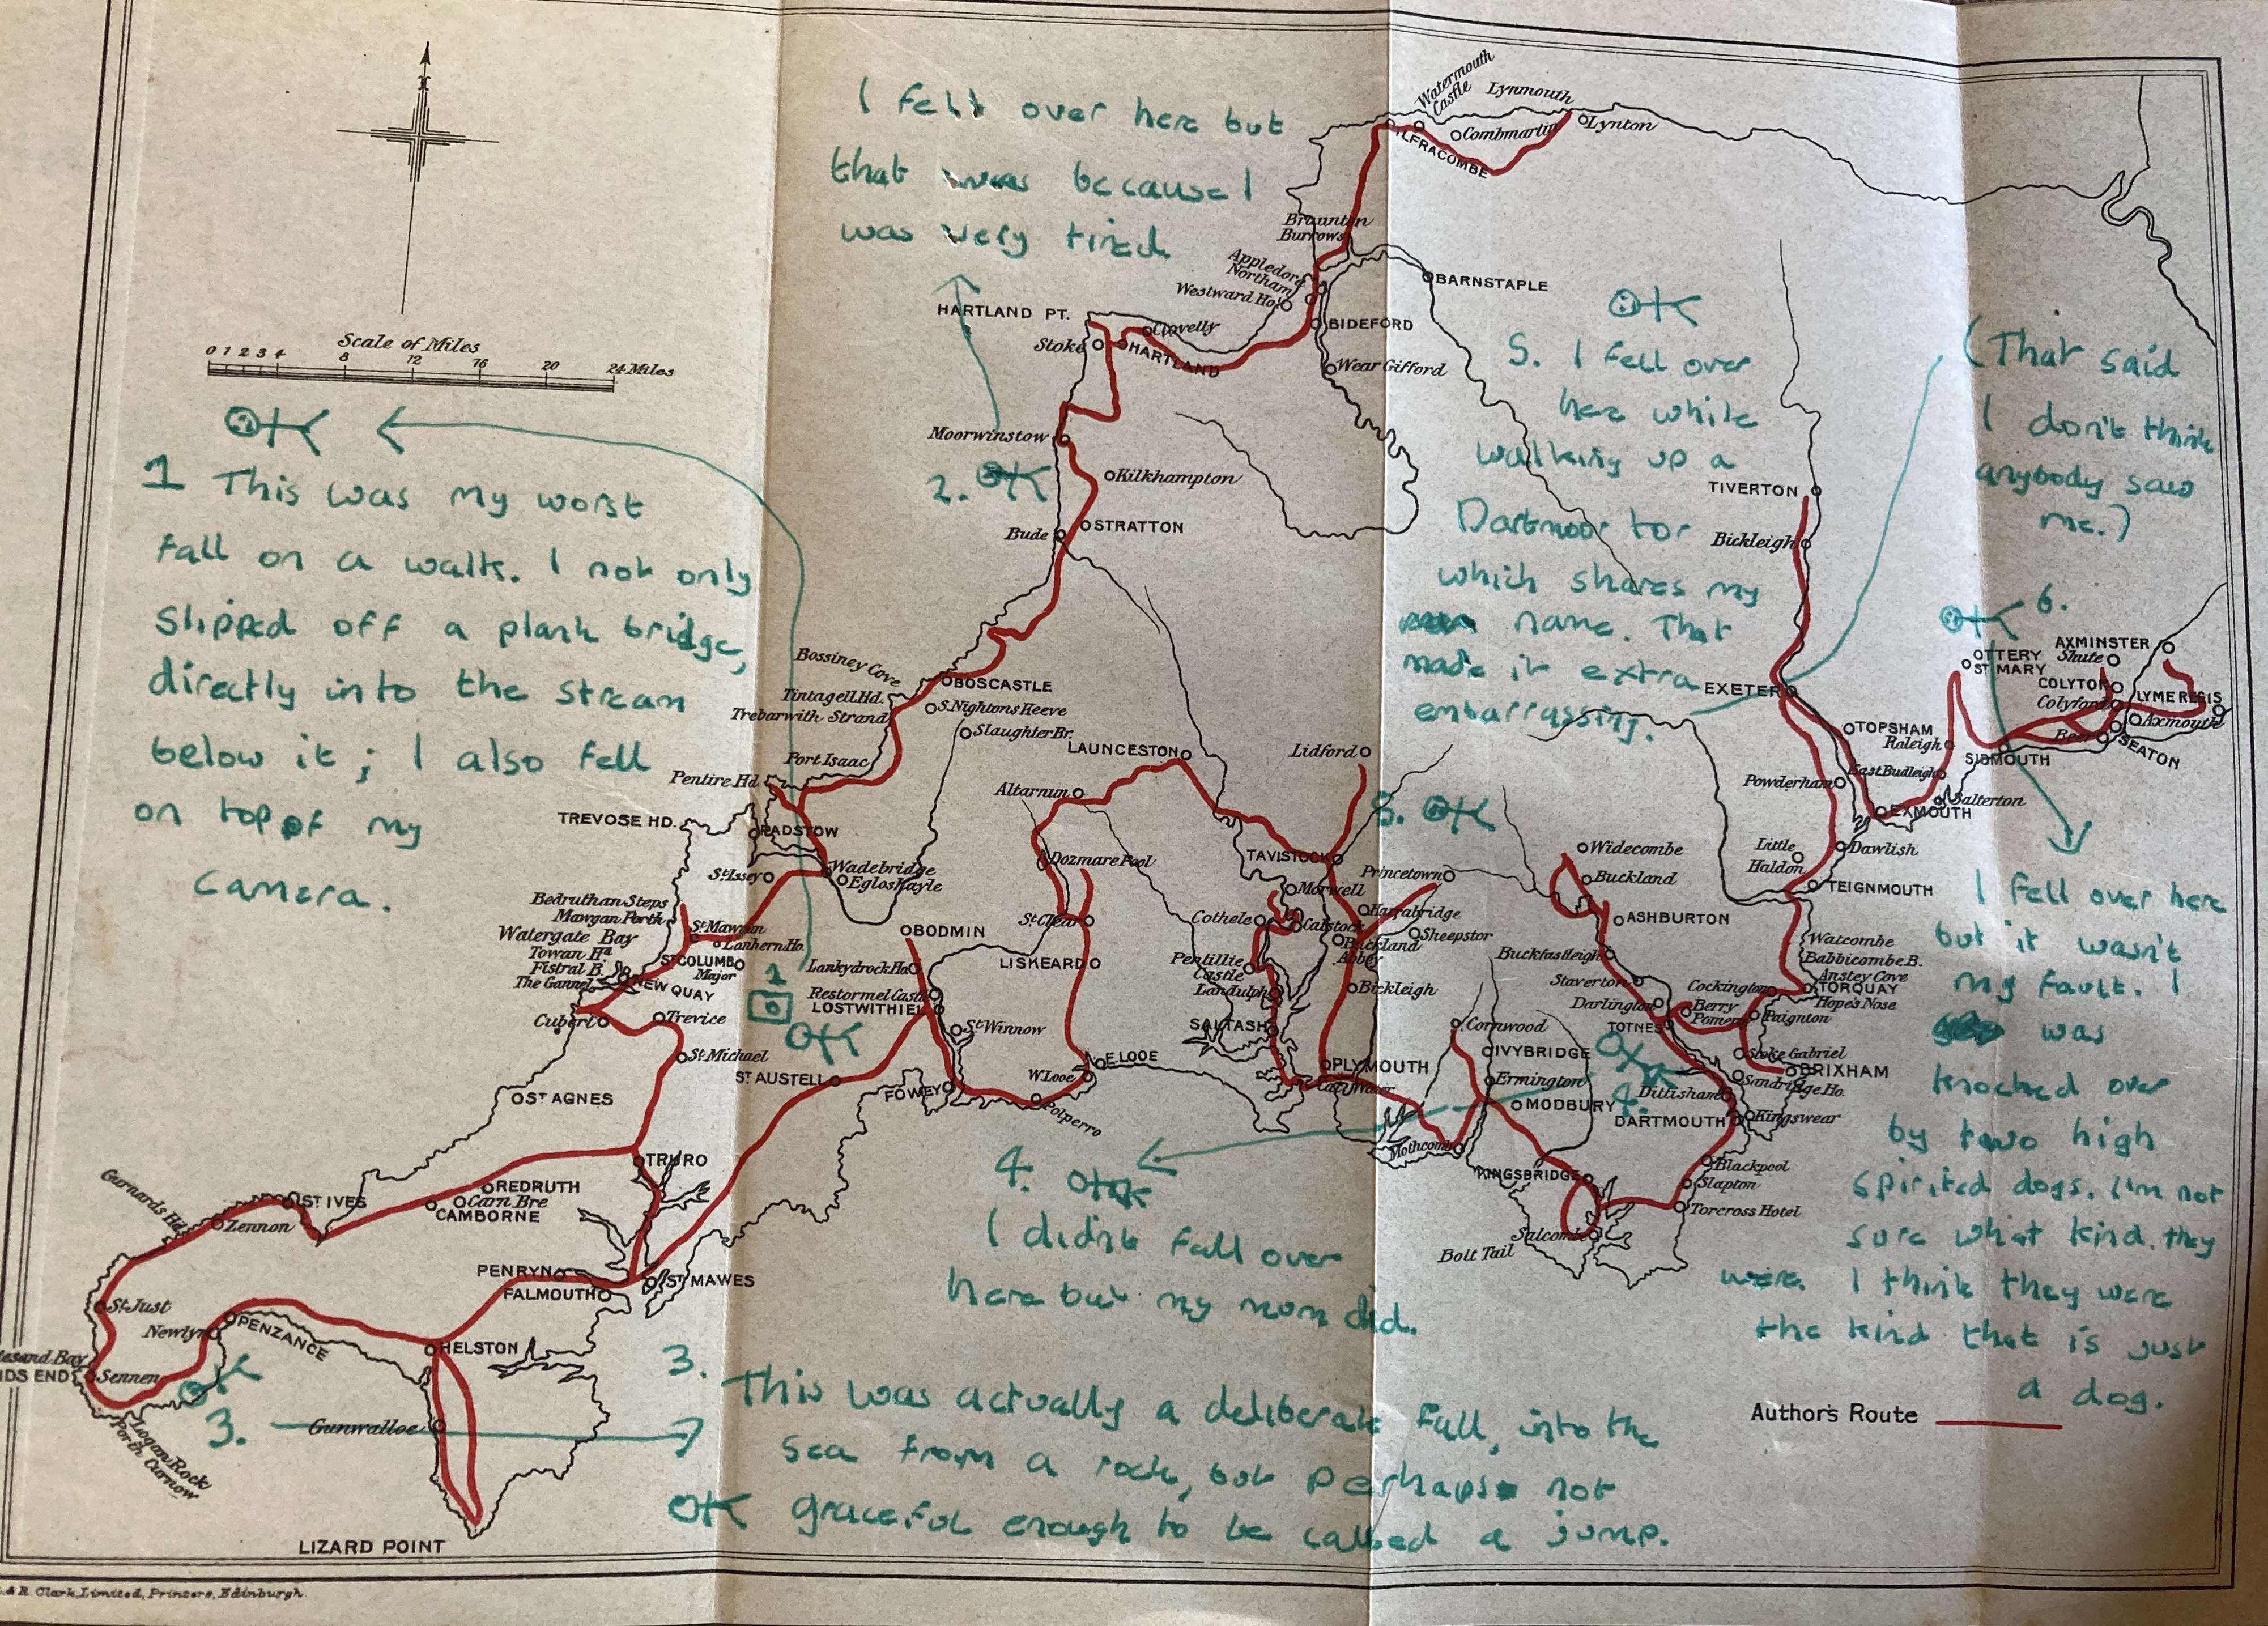 N
Scale of Miles
0 1 2 3 4 8 12 16 20 24 Miles
1 This was my worst
fall on a walk. I not only
slipped off a plank bridge,
directly into the stream
below it; I also fell
on top of my
camera.
I fell over here but
that was because I
was very tired
2.
Watermouth
Castle
Lynmouth
Lynton
Combmartin
ILFRACOMBE
Braunton
Burrows
Appledore
Northam
Westward Ho!
BARNSTAPLE
BIDEFORD
Wear Gifford
HARTLAND PT.
Clovelly
Stoke
HARTLAND
Moorwinstow
Kilkhampton
STRATTON
Bude
Bossiney Cove
BOSCASTLE
Tintagell Hd.
S. Nightons Keeve
Trebarwith Strand
Slaughter Br.
Port Isaac
Pentire Hd.
LAUNCESTON
Lidford
Altarnun
TREVOSE HD.
PADSTOW
Dozmare Pool
TAVISTOCK
Wadebridge
St. Issey
Egloshayle
Princetown
Morwell
Bedruthan Steps
Mawgan Porth
St. Mawgan
Watergate Bay
Lanhern Ho.
Towan Hd.
Fistral B.
The Gannel
ST COLUMB
Major
NEW QUAY
BODMIN
St. Clear
Cothele
Calstock
Harrabridge
Sheepstor
Buckland
Abbey
LISKEARD
Lanhydrock Ho.
Pentillie
Castle
Landulph
Bickleigh
1
Restormel Castle
LOSTWITHIEL
Cubert
Trevice
St. Winnow
SALTASH
St. Michael
E. LOOE
PLYMOUTH
ST AUSTELL
W. Looe
Catt Water
FOWEY
Polperro
ST AGNES
Mothcomb
TRURO
Gurnards Hd.
ST IVES
REDRUTH
Carn Bre
CAMBORNE
Zennon
PENRYN
FALMOUTH
ST MAWES
St. Just
Newlyn
PENZANCE
HELSTON
Sennen
Logan Rock
Porth Curnow
Gunwalloe
3.
LIZARD POINT
5. I fell over
here while
walking up a
Dartmoor tor
which shares my
name. That
made it extra
embarrassing.
5.
(That said
I don't think
anybody saw
me.)
6.
TIVERTON
Bickleigh
EXETER
AXMINSTER
Shute
OTTERY
ST MARY
COLYTON
Colyford
LYME REGIS
Axmouth
Beer
SEATON
SIDMOUTH
TOPSHAM
Raleigh
East Budleigh
Powderham
Salterton
EXMOUTH
Little
Haldon
Dawlish
TEIGNMOUTH
Widecombe
Buckland
ASHBURTON
Watcombe
Babbicombe B.
Anstey Cove
TORQUAY
Hope's Nose
Buckfastleigh
Staverton
Cockington
Darlington
Berry
Pomeroy
Paignton
TOTNES
Cornwood
Stoke Gabriel
BRIXHAM
IVYBRIDGE
Ermington
Sandridge Ho.
Dittisham
MODBURY
4.
DARTMOUTH
Kingswear
Blackpool
KINGSBRIDGE
Slapton
Torcross Hotel
Salcombe
Bolt Tail
I fell over here
but it wasn't
my fault. I
was
knocked over
by two high
spirited dogs. I'm not
sure what kind they
were. I think they were
the kind that is just
a dog.
4.
I didn't fall over
here but my mum did.
3.
This was actually a deliberate fall, into the
sea from a rock, but perhaps not
graceful enough to be called a jump.
Author's Route
& R. Clark, Limited, Printers, Edinburgh.